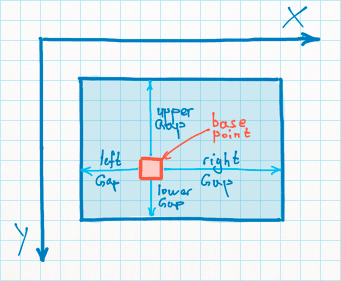 X
upper
Gap
base
point
left
Gap
right
Gap
lower
Gap
Y